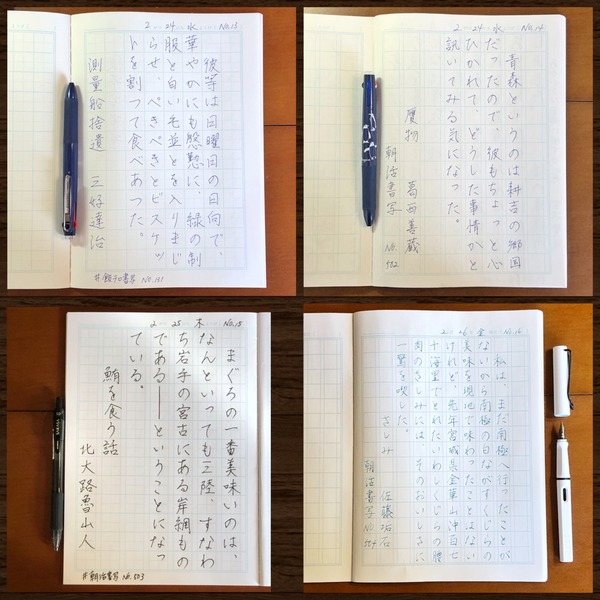 2 24 水 No.15
彼等は日曜日の日向で、
華やかにも慇懃に、緑の制
服と白い毛並とを入りまじ
らせ、ぺきぺきとビスケッ
トを割つて食べあつた。
測量船拾遺 三好達治
#餃子の書写 No.131
2 24 水 No.14
青森というのは耕吉の郷国
だったので、彼もちょっと心
ひかれて、どうした事情かと
訊いてみる気になった。
贋物 葛西善蔵
朝活書写 No.502
2 25 木 No.15
まぐろの一番美味いのは、
なんといっても三陸、すなわ
ち岩手の宮古にある岸網もの
である——ということになっ
ている。
鮪を食う話
北大路魯山人
#朝活書写 No.503
2 26 金 No.16
私は、まだ南極へ行ったことが
ないから南極の白ながすくじらの
美味を現地で味わったことはない
けれど、先年宮城県金華山沖百七
十海里でとれたいわしくじらの
肉のさしみには、そのおいしさに
一驚を喫した。
さしみ 佐藤垢石
朝活書写 No.504